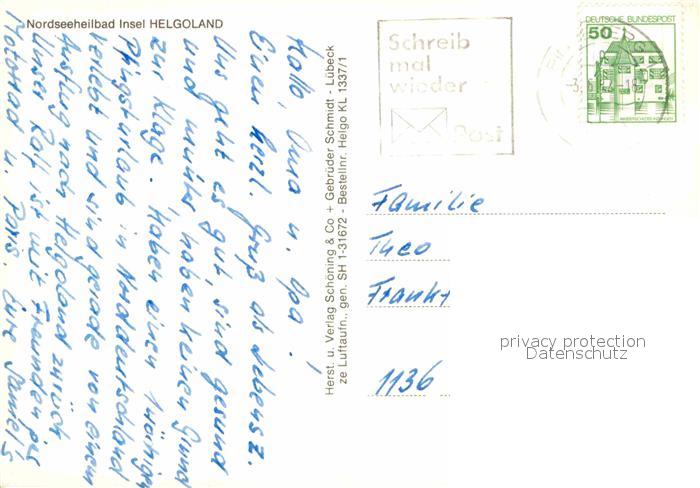 Nordseeheilbad Insel HELGOLAND
Hallo, Oma u. Opa!
Einen herzl. Gruß als Lebensz.
Uns geht es gut, sind gesund
und munter haben keinen Grund
zur Klage. Haben einen
Pfingsturlaub in Norddeutschland
verlebt und sind gerade von einem
Ausflug nach Helgoland zurück
Unser Rolf ist mit Freunden per
Motorrad u. Paris. Eure Daniel's
Herst. u. Verlag Schöning & Co + Gebrüder Schmidt - Lübeck
ze Luftaufn., gen. SH 1-31672 - Bestellnr. Helgo KL 1337/1
Schreib
mal
wieder
Post
DEUTSCHE BUNDESPOST
50
Familie
Theo
Frankf
1136
privacy protection
Datenschutz